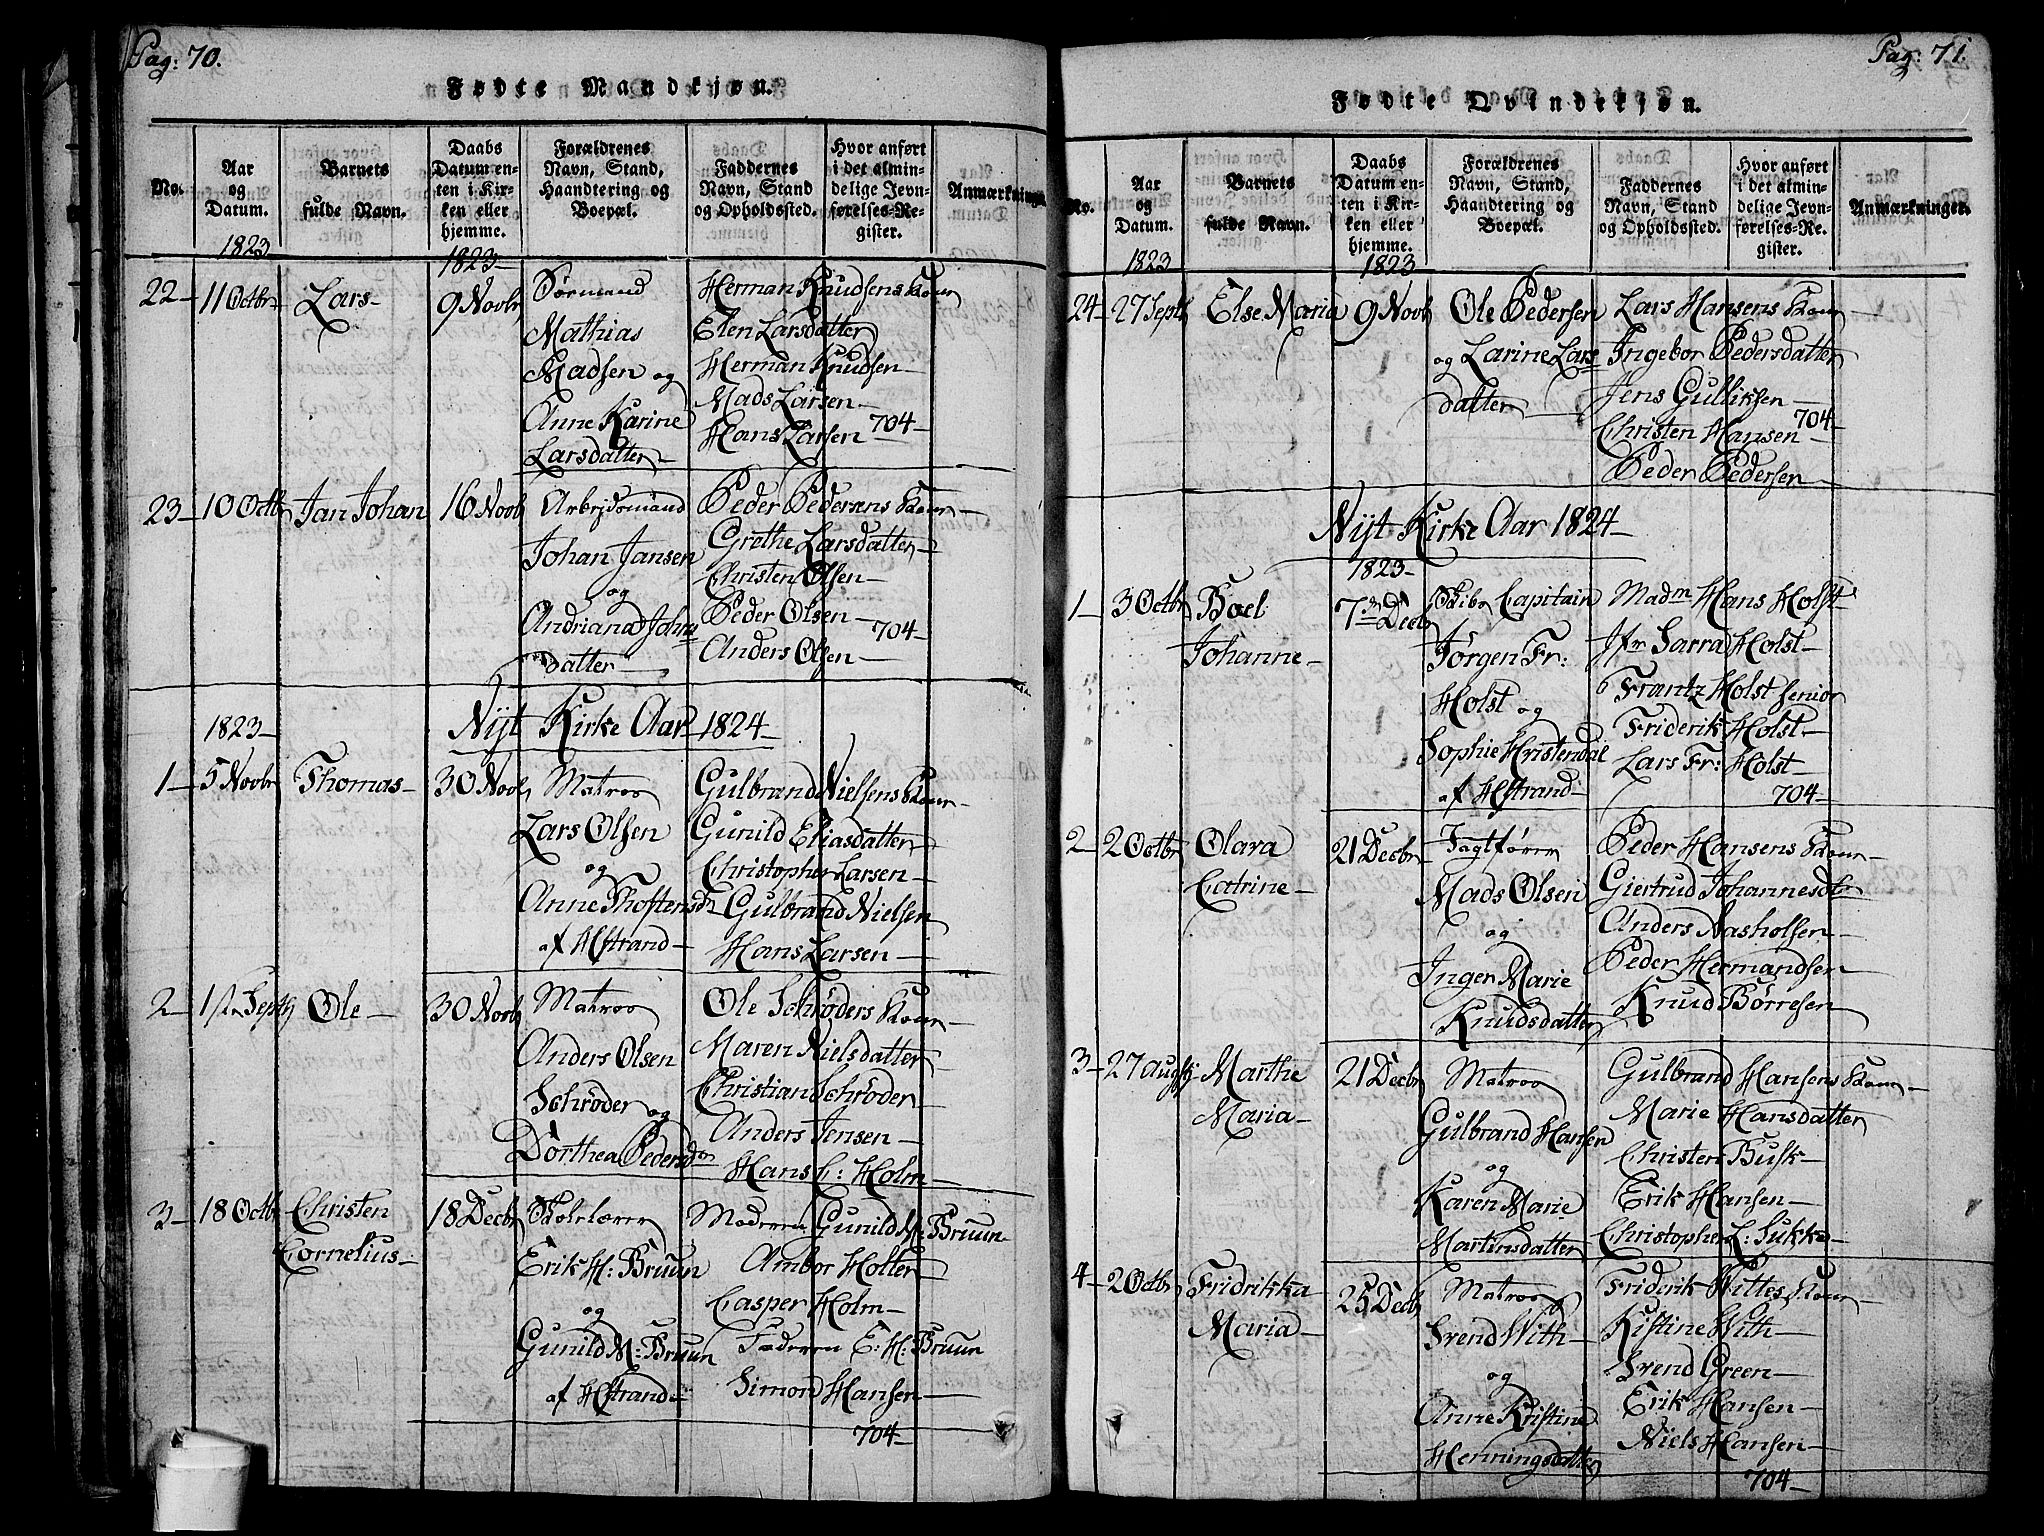 Pag: 70.
Fødte Mandkjøn.
No.
Aar
og
Datum.
Barnets
fulde Navn.
Daabs
Datum en-
ten i Kir-
ken eller
hjemme.
Forældrenes
Navn, Stand,
Haandtering og
Boepæl.
Faddernes
Navn, Stand
og Opholdssted.
Hvor anført
i det almin-
delige Jevn-
førelses-Re-
gister.
Anmærkninger.
1823
1823-
22-
11 Octbr
Lars-
9 Novbr
Sørmand
Mathias
Madsen og
Anne Karine
Larsdatter-
Herman Knudsens Kone
Elen Larsdatter
Herman Knudsen-
Mads Larsen-
Hans Larsen
704-
23-
10 Octbr
Jan Johan
16 Novb
Arbejdsmand
Johan Jansen
og
Andriana Johns
datter-
Peder Pedersens Kone-
Grethe Larsdatter-
Christen Olsen-
Peder Olsen-
Anders Olsen-
704-
1823-
Nyt Kirke Aar 1824
1-
5 Novbr
Thomas-
30 Novb
Matros
Lars Olsen
og
Anne Thostensd
af Hstrand-
Gulbrand Nielsens Kone-
Gunild Eliasdatter
Christopher Larsen-
Gulbrand Nielsen
Hans Larsen-
2-
Ole-
30 Novb
Matros
Anders Olsen
Schrøder og
Dorthea Pedersd
Ole Schrøders Kone-
Maren Nielsdatter
Christian Schrøder
Anders Jensen-
Hans C: Holm-
3-
18 Octb
Christen
Cornelius-
18 Decb
Skolelærer
Erik H: Bruun
og
Gunild M: Bruun
af Hstrand-
Moderen Gunild M: Bruun
Ambor Holter-
Casper Holm-
Faderen E: H: Bruun
Simon Hansen-
704-
Pag: 71.
Fødte Qvindekjøn.
No.
Aar
og
Datum.
Barnets
fulde Navn.
Daabs
Datum en-
ten i Kir-
ken eller
hjemme.
Forældrenes
Navn, Stand,
Haandtering og
Boepæl.
Faddernes
Navn, Stand
og Opholdssted.
Hvor anført
i det almin-
delige Jevn-
førelses-Re-
gister.
Anmærkninger.
1823
1823-
24-
27 Septb
Else Maria
9 Novb
Ole Pedersen
og Larine Lars
datter-
Lars Hansens Kone
Ingebor Pedersdatter
Jens Gulliksen-
Christen Hansen-
Peder Pedersen
704-
Nyt Kirke Aar 1824-
1823-
1-
3 Octbr
Boel
Johanne-
7 Decb
Skibs Capitain
Jørgen Fr:
Holst og
Sophie Kristendal
af Hstrand-
Madm Hans Holst
Jfr Sarra Holst-
Frantz Holst senior
Friderik Holst-
Lars Fr: Holst-
704-
2-
2 Octbr
Olava
Catrine-
21 Decbr
Jagtfører
Mads Olsen
og
Inger Marie
Knudsdatter
Peder Hansens Kone-
Giertrud Johannesdtr
Anders Aasholsen-
Peder Hermandsen
Knud Børresen-
3-
27 Augst
Marthe
Maria-
21 Decbr
Matros
Gulbrand Hansen
og
Karen Marie
Martinsdatter
Gulbrand Hansens Kone-
Marie Hansdatter
Christen Busk-
Erik Hansen-
Christopher L: Sukke-
4-
2 Octbr
Fridrikka
Maria-
25 Decb
Matros
Svend With-
og
Anne Kristine
Henningsdatter
Friderik Wittes Kone-
Kistine With-
Svend Green-
Erik Hansen-
Niels Hansen-
704-